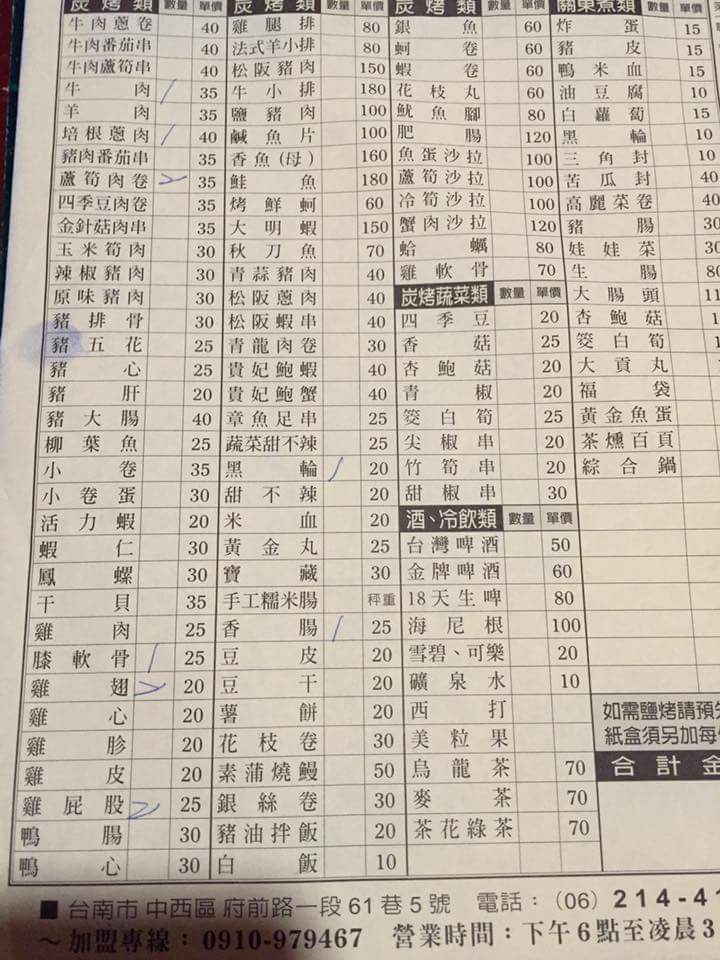 炭烤類 數量 單價
牛肉蔥卷 40
牛肉番茄串 40
牛肉蘆筍串 40
牛肉 / 35
羊肉 35
培根蔥肉 / 40
豬肉番茄串 35
蘆筍肉卷 35
四季豆肉卷 35
金針菇肉串 35
玉米筍肉 30
辣椒豬肉 30
原味豬肉 30
豬排骨 30
豬五花 25
豬心 25
豬肝 20
豬大腸 40
柳葉魚 25
小卷 35
小卷蛋 30
活力蝦 20
蝦仁 30
鳳螺 30
干貝 35
雞肉 25
膝軟骨 / 25
雞翅 20
雞心 20
雞胗 20
雞皮 20
雞屁股 25
鴨腸 30
鴨心 30
炭烤類 數量 單價
雞腿排 80
法式羊小排 80
松阪豬肉 150
牛小排 180
鹽豬肉 100
鹹魚片 100
香魚(母) 160
鮭魚 180
烤鮮蚵 60
大明蝦 150
秋刀魚 70
青蒜豬肉 40
松阪蔥肉 40
松阪蝦串 40
青龍肉卷 30
貴妃鮑蝦 40
貴妃鮑蟹 40
章魚足串 25
蔬菜甜不辣 25
黑輪 / 20
甜不辣 20
米血 20
黃金丸 25
寶藏 30
手工糯米腸 秤重
香腸 / 25
豆皮 20
豆干 20
薯餅 20
花枝卷 30
素蒲燒鰻 50
銀絲卷 30
豬油拌飯 20
白飯 10
炭烤類 數量 單價
銀魚 60
蚵卷 60
蝦卷 60
花枝丸 60
魷魚腳 80
肥腸 120
魚蛋沙拉 100
蘆筍沙拉 100
冷筍沙拉 100
蟹肉沙拉 120
蛤蠣 80
雞軟骨 70
炭烤蔬菜類 數量 單價
四季豆 20
香菇 25
杏鮑菇 20
青椒 20
筊白筍 25
尖椒串 20
竹筍串 20
甜椒串 30
酒、冷飲類 數量 單價
台灣啤酒 50
金牌啤酒 60
18天生啤 80
海尼根 100
雪碧、可樂 20
礦泉水 10
西打
美粒果
烏龍茶 70
麥茶 70
茶花綠茶 70
關東煮類 數量 單價
炸蛋 15
豬皮 15
鴨米血 15
油豆腐 10
白蘿蔔 15
黑輪 10
三角封 10
苦瓜封 40
高麗菜卷 40
豬腸 30
娃娃菜 30
生腸 80
大腸頭
杏鮑菇
筊白筍
大貢丸
福袋
黃金魚蛋
茶燻百頁
綜合鍋
如需鹽烤請預先
紙盒須另加每
合計金
■ 台南市 中西區 府前路一段 61 巷 5 號 電話：(06) 214-41
～加盟專線：0910-979467 營業時間：下午 6 點至凌晨 3